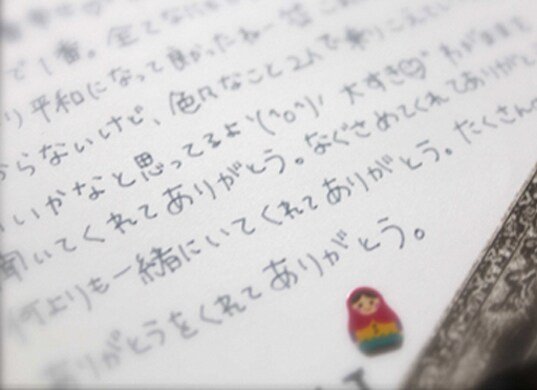 で1番。全てなに
り平和になって良かったねー笑
からないけど、色々なこと2人で乗りこえてい
いいかなと思ってるよ\(^o^)/ 大すき わがままを
聞いてくれてありがとう。なぐさめてくれてありがとう
何よりも一緒にいてくれてありがとう。たくさん
ありがとうをくれてありがとう。